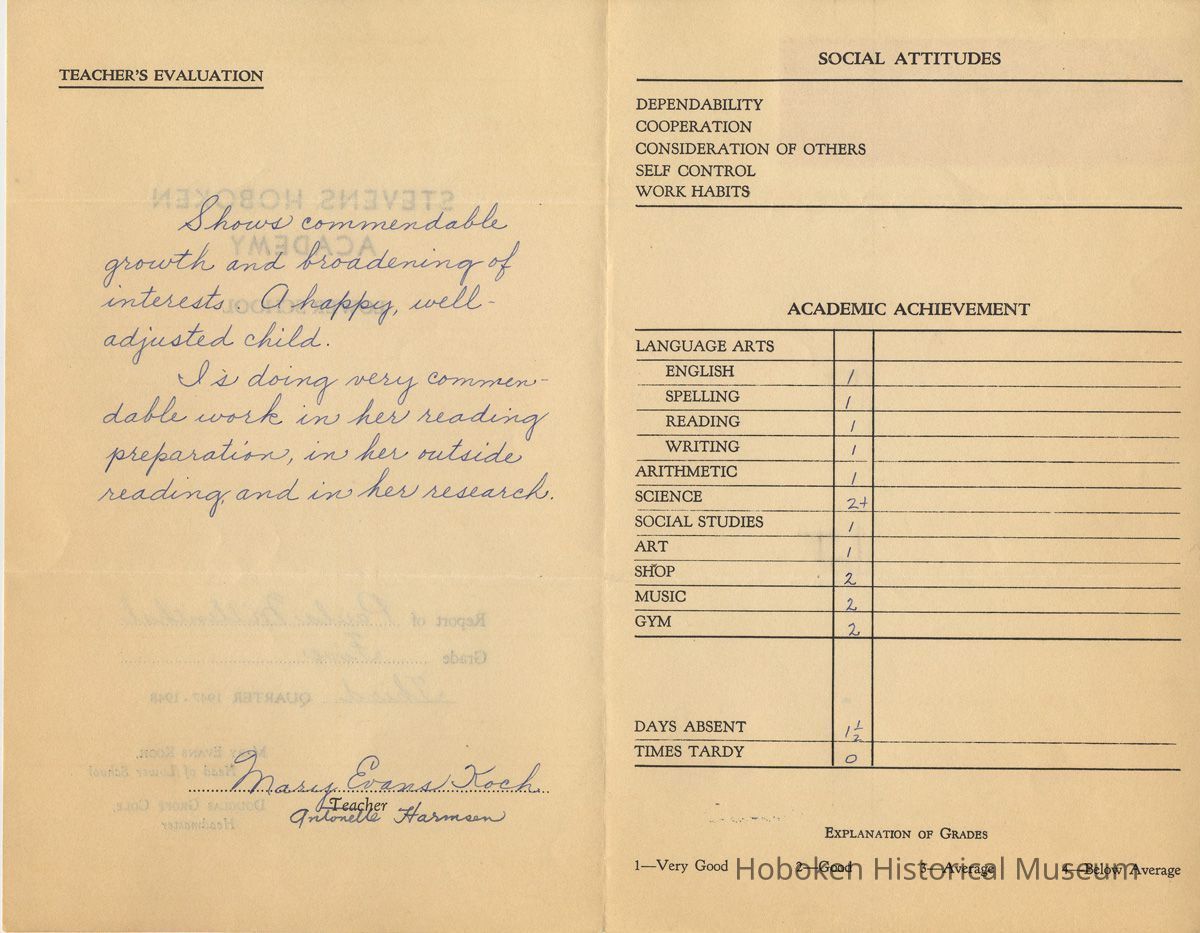 TEACHER'S EVALUATION
STEVENS HOBOKEN
ACADEMY
LOWER SCHOOL
Shows commendable
growth and broadening of
interests. A happy, well-
adjusted child.
Is doing very commen-
dable work in her reading
preparation, in her outside
reading, and in her research.
Report of
Grade
Third QUARTER 1947-1948
MARY EVANS KOCH,
Head of Lower School
DOUGLAS GROFF COLE,
Headmaster
Mary Evans Koch
Teacher
Antonette Harmsen
SOCIAL ATTITUDES
DEPENDABILITY
COOPERATION
CONSIDERATION OF OTHERS
SELF CONTROL
WORK HABITS
ACADEMIC ACHIEVEMENT
LANGUAGE ARTS
ENGLISH 1
SPELLING 1
READING 1
WRITING 1
ARITHMETIC 1
SCIENCE 2+
SOCIAL STUDIES 1
ART 1
SHOP 2
MUSIC 2
GYM 2
DAYS ABSENT 1½
TIMES TARDY 0
EXPLANATION OF GRADES
1—Very Good 2—Good 3—Average 4—Below Average
Hoboken Historical Museum